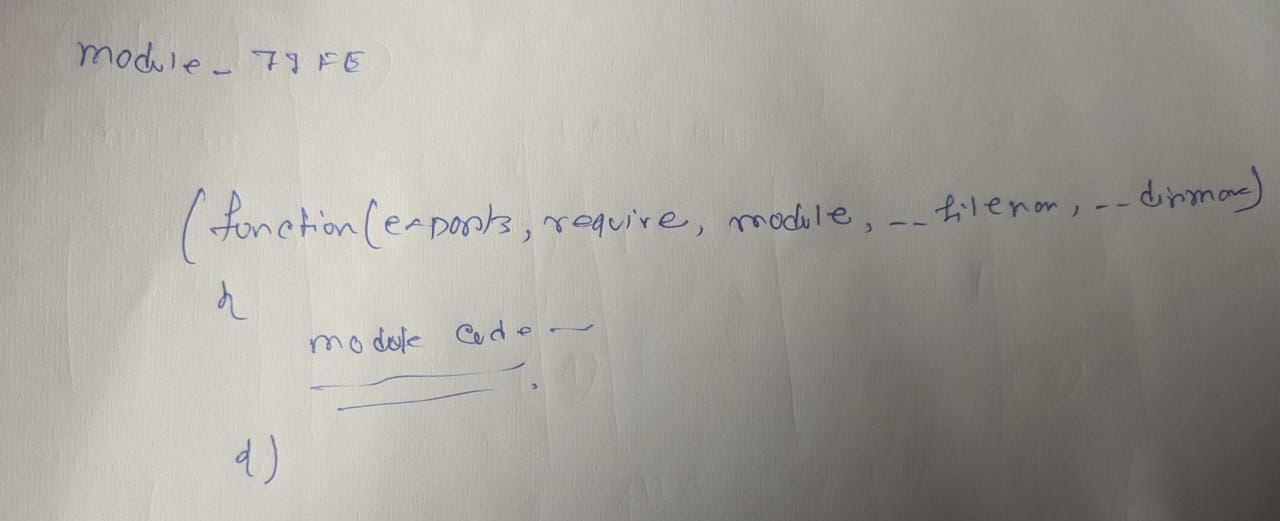 module - IIFE
(function(exports, require, module, __filenam, __dirname)
{
module code —
})